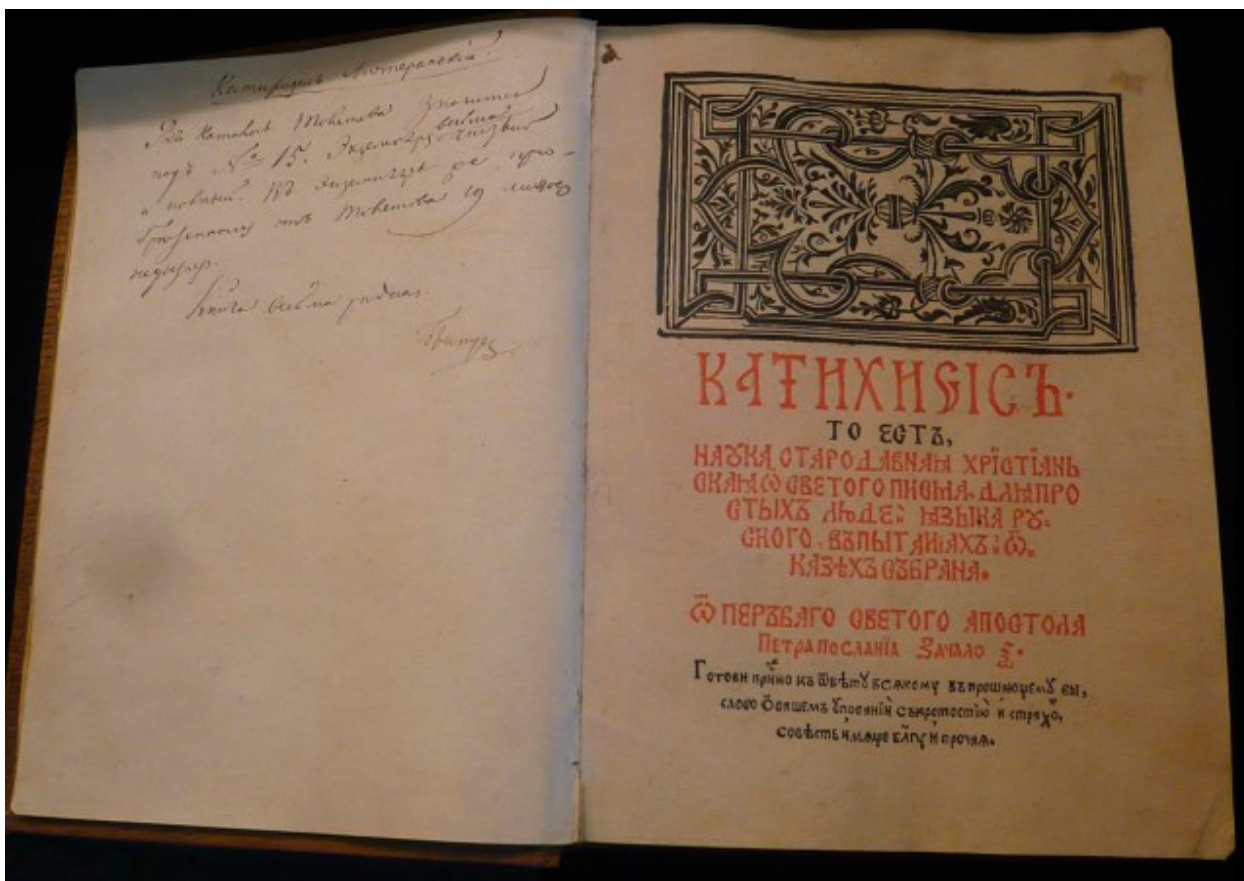 Катихизисъ Лютеранскій.
Въ каталогѣ Толстова значится
подъ № 15. Экземпляръ
весьма
отъ Толстова 19 листов
Книга весьма рѣдкая.
КАТИХИЅІСЪ·
ТО ЕСТЪ,
НАꙊКА СТАРОДАВНАꙖ ХРЇСТЇАНЬ
СКАꙖ Ѿ СВЕТОГО ПИСМА, ДЛꙖ ПРО
СТЫХЪ ЛЮДЕЙ ꙖЗЫКА РꙊ-
СКОГО, ВЪПЫТАНІАХЪ Ѿ-
КАЗѢХЪ СЪБРАНА.
Ѿ ПЕРЪВАГО СВЕТОГО АПОСТОЛА
ПЕТРА ПОСЛАНЇА ЗАЧАЛО
Готови присно къ ѿвѣтꙋ всякомꙋ въпрошающемꙋ вы,
слово ѡ вашемъ ꙋпованїи съкротостїю и страхо,
совѣсть имꙋще блгꙋ и прочая.